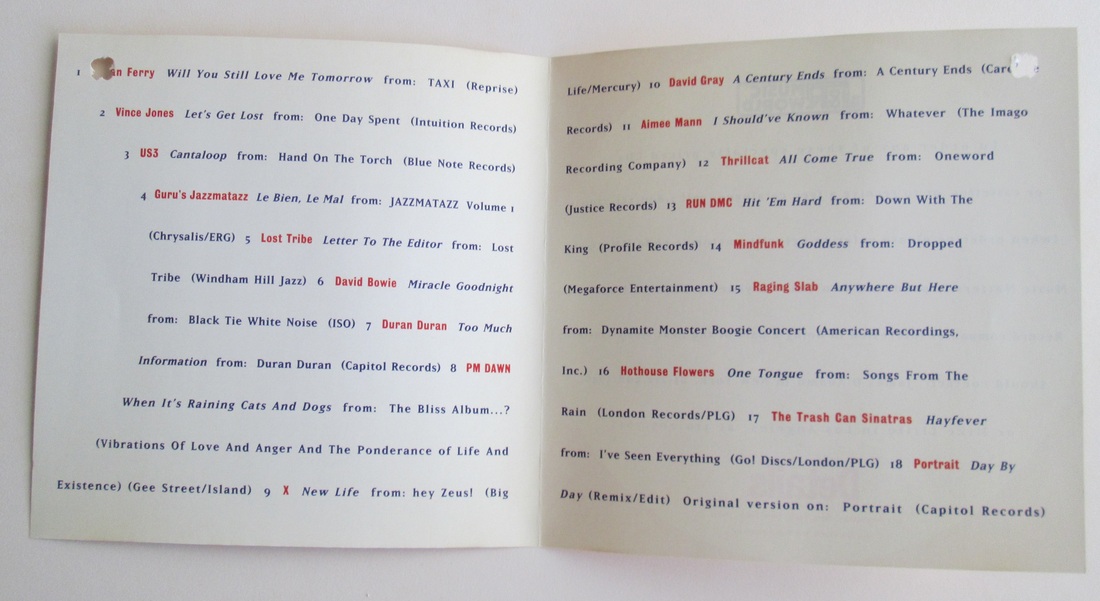 1 an Ferry Will You Still Love Me Tomorrow from: TAXI (Reprise)
2 Vince Jones Let's Get Lost from: One Day Spent (Intuition Records)
3 US3 Cantaloop from: Hand On The Torch (Blue Note Records)
4 Guru's Jazzmatazz Le Bien, Le Mal from: JAZZMATAZZ Volume 1
(Chrysalis/ERG) 5 Lost Tribe Letter To The Editor from: Lost
Tribe (Windham Hill Jazz) 6 David Bowie Miracle Goodnight
from: Black Tie White Noise (ISO) 7 Duran Duran Too Much
Information from: Duran Duran (Capitol Records) 8 PM DAWN
When It's Raining Cats And Dogs from: The Bliss Album...?
(Vibrations Of Love And Anger And The Ponderance of Life And
Existence) (Gee Street/Island) 9 X New Life from: hey Zeus! (Big
Life/Mercury) 10 David Gray A Century Ends from: A Century Ends (Car
Records) 11 Aimee Mann I Should've Known from: Whatever (The Imago
Recording Company) 12 Thrillcat All Come True from: Oneword
(Justice Records) 13 RUN DMC Hit 'Em Hard from: Down With The
King (Profile Records) 14 Mindfunk Goddess from: Dropped
(Megaforce Entertainment) 15 Raging Slab Anywhere But Here
from: Dynamite Monster Boogie Concert (American Recordings,
Inc.) 16 Hothouse Flowers One Tongue from: Songs From The
Rain (London Records/PLG) 17 The Trash Can Sinatras Hayfever
from: I've Seen Everything (Go! Discs/London/PLG) 18 Portrait Day By
Day (Remix/Edit) Original version on: Portrait (Capitol Records)